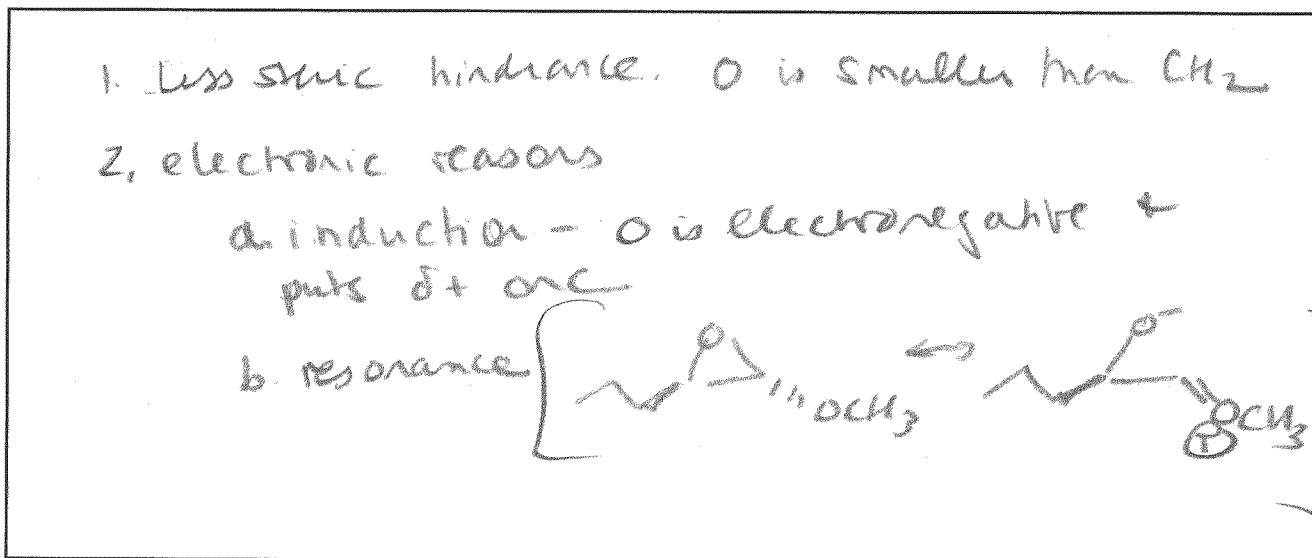 1. Less steric hindrance. O is smaller than CH2
2. electronic reasons
a. induction - O is electronegative +
puts δ+ on C
b. resonance O OCH3 ↔ O- OCH3 +